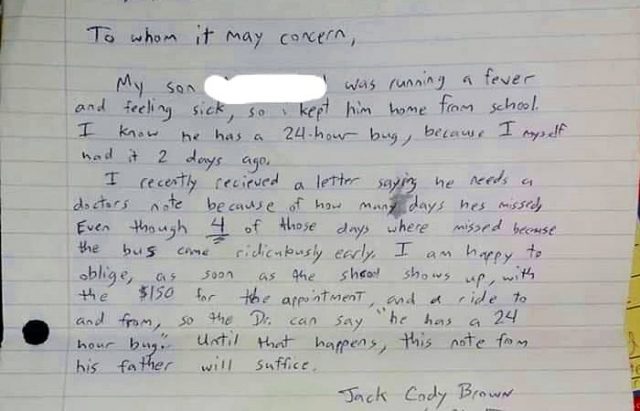 To whom it may concern,
My son was running a fever
and feeling sick, so i kept him home from school.
I know he has a 24-hour bug, because I myself
had it 2 days ago.
I recently recieved a letter saying he needs a
doctors note because of how many days hes missed,
Even though 4 of those days where missed because
the bus came ridiculously early. I am happy to
oblige, as soon as the shcool shows up, with
the $150 for the appointment, and a ride to
and from, so the Dr. can say "he has a 24
hour bug". Until that happens, this note from
his father will suffice.
Jack Cody Brown